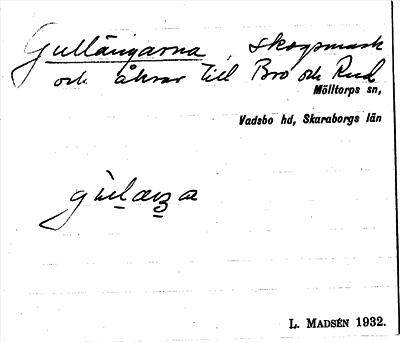 Gullängarna, skogsmark
och åkrar till Bro och Rud
Mölltorps sn,
Vadsbo hd, Skaraborgs län
L. MADSÉN 1932.